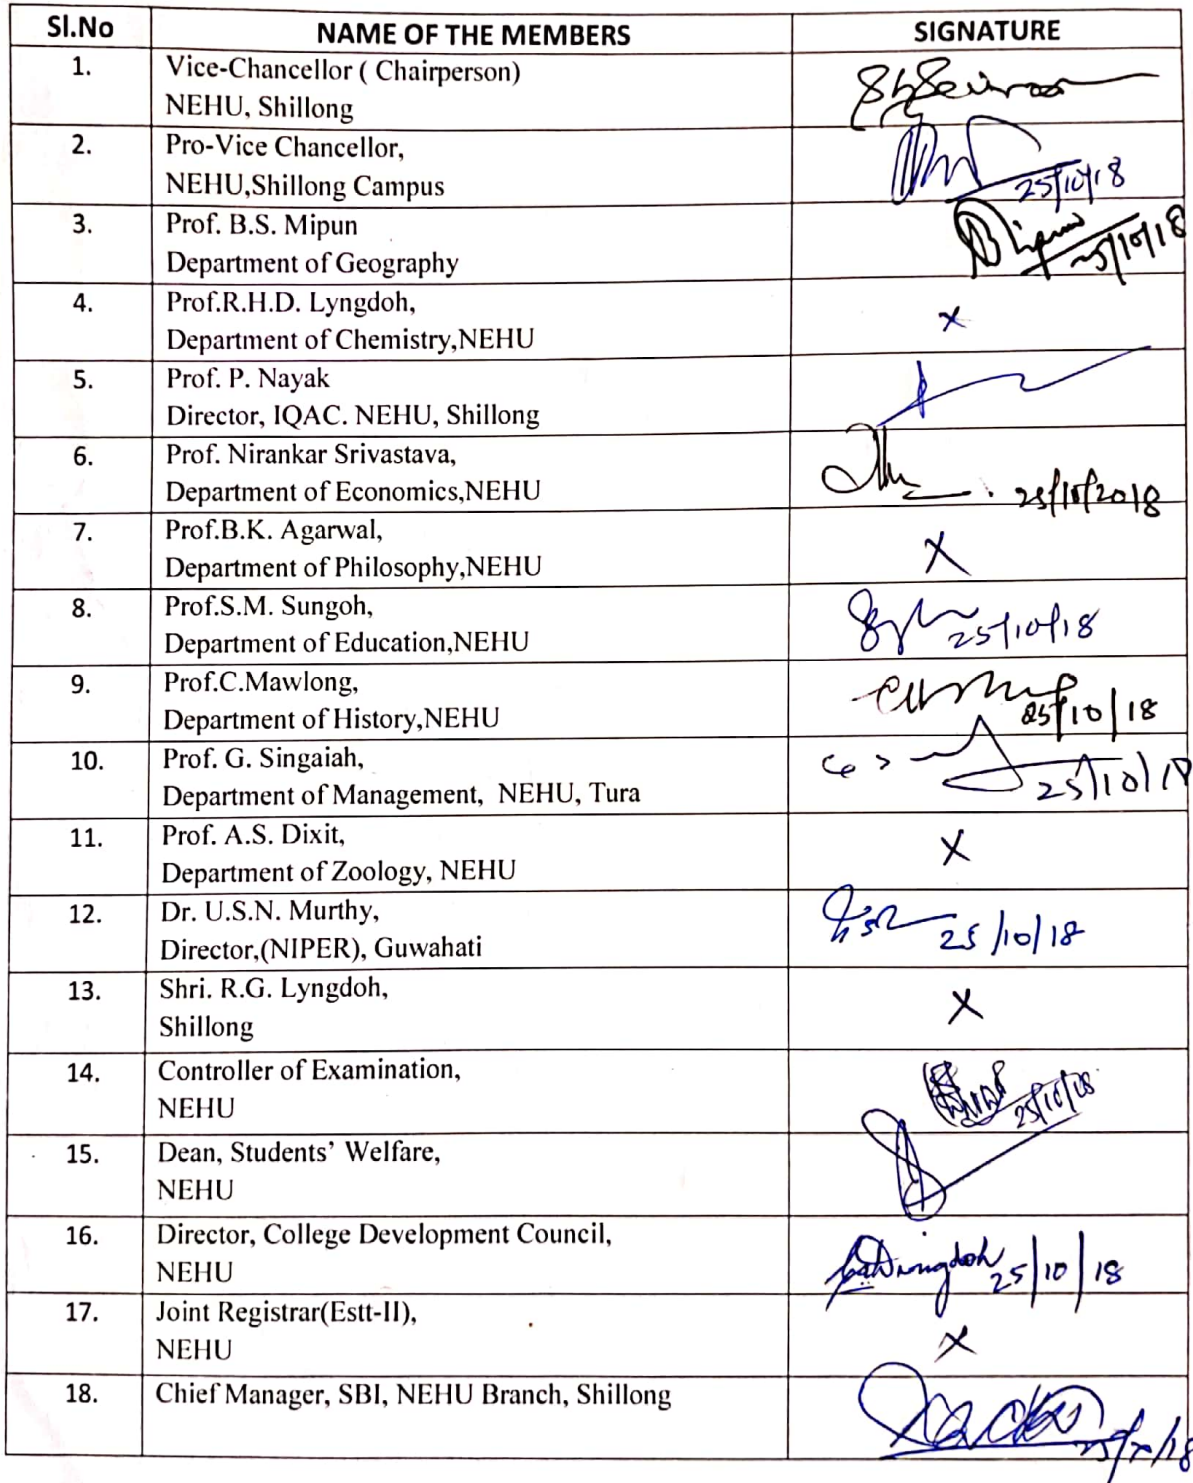 Sl.No NAME OF THE MEMBERS SIGNATURE
1. Vice-Chancellor ( Chairperson)
NEHU, Shillong
2. Pro-Vice Chancellor,
NEHU,Shillong Campus 25/10/18
3. Prof. B.S. Mipun
Department of Geography 25/10/18
4. Prof.R.H.D. Lyngdoh, x
Department of Chemistry,NEHU
5. Prof. P. Nayak
Director, IQAC. NEHU, Shillong
6. Prof. Nirankar Srivastava,
Department of Economics,NEHU 25/10/2018
7. Prof.B.K. Agarwal, X
Department of Philosophy,NEHU
8. Prof.S.M. Sungoh,
Department of Education,NEHU 25/10/18
9. Prof.C.Mawlong,
Department of History,NEHU 25/10/18
10. Prof. G. Singaiah,
Department of Management, NEHU, Tura 25/10/18
11. Prof. A.S. Dixit, X
Department of Zoology, NEHU
12. Dr. U.S.N. Murthy,
Director,(NIPER), Guwahati 25/10/18
13. Shri. R.G. Lyngdoh, X
Shillong
14. Controller of Examination,
NEHU 25/10/18
15. Dean, Students’ Welfare,
NEHU
16. Director, College Development Council,
NEHU 25/10/18
17. Joint Registrar(Estt-II),
NEHU X
18. Chief Manager, SBI, NEHU Branch, Shillong